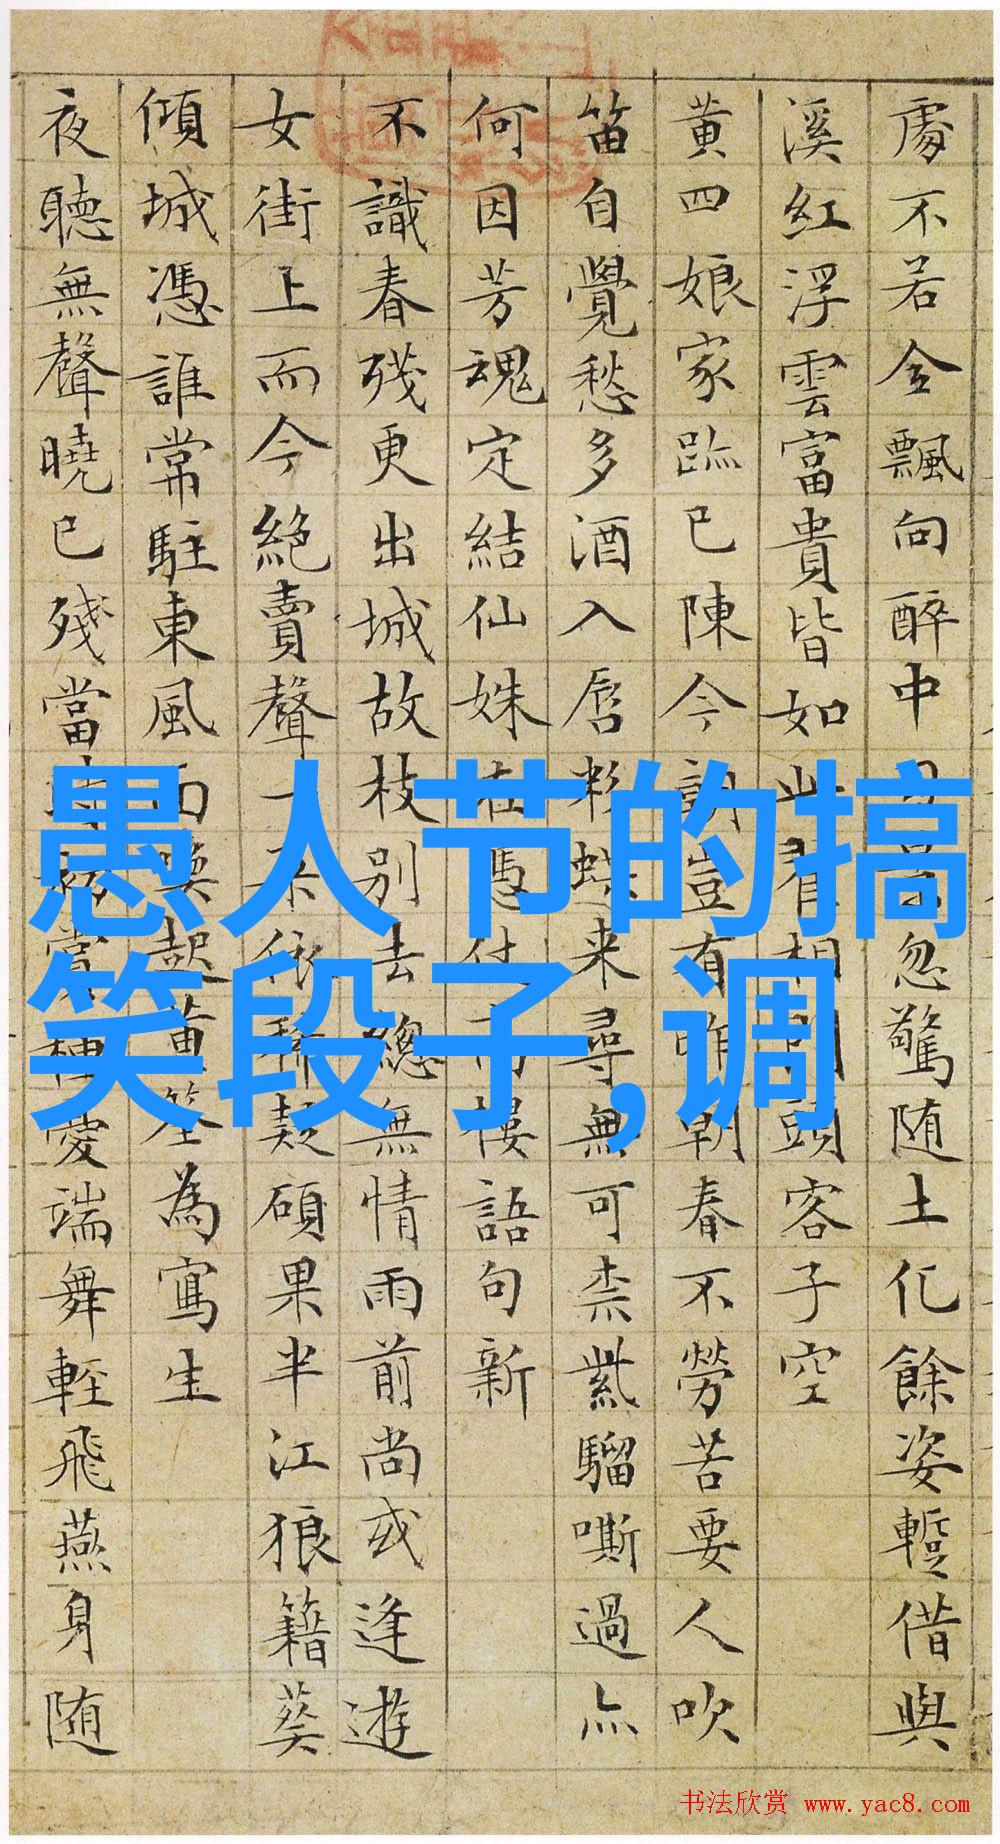 處不若金飄向醉中忽驚随土化餘姿蹔借與
溪紅浮雲富貴皆如此看相頭客子空
黄四娘家跡已陳今豈有昨朝春不勞苦要人吹
笛自覺愁多酒入唇粉蝶来尋無可柰紫騮嘶過亦
何因芳魂定結仙姝在憑仗樓語句新
不識春残更出城故枝别去總無情雨前尚或逢遊
女街上而今絶賣聲一朵依稀疑碩果半江狼籍葵
傾城憑誰常駐東風面唤起黄筌為寫生
夜聽無聲曉已残當愛端舞輕飛燕身随
愚人节的搞
笑段子,调
书法欣赏 www.yac8.com